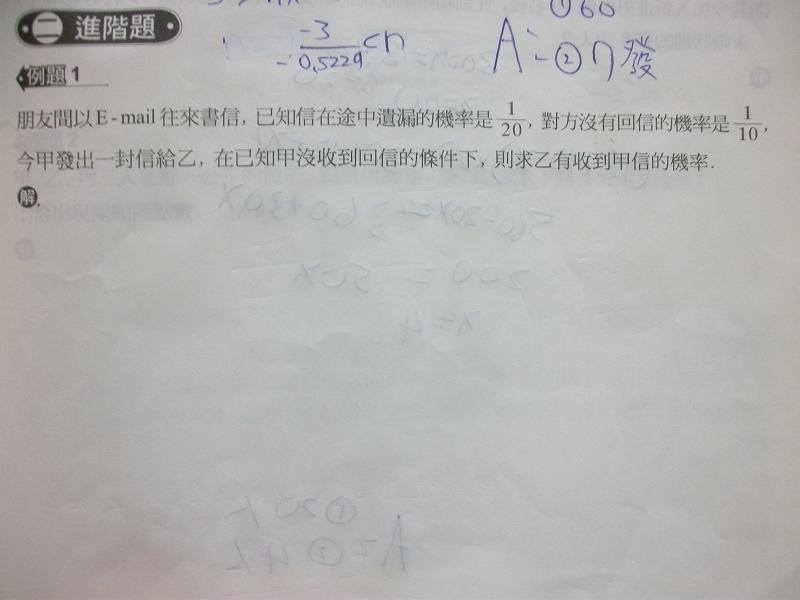 ①60
二 進階題
-3
-0.5229 <n
A: ②n發
例題1
朋友間以E-mail往來書信,已知信在途中遺漏的機率是 1/20,對方沒有回信的機率是 1/10,
今甲發出一封信給乙,在已知甲沒收到回信的條件下,則求乙有收到甲信的機率.
解.